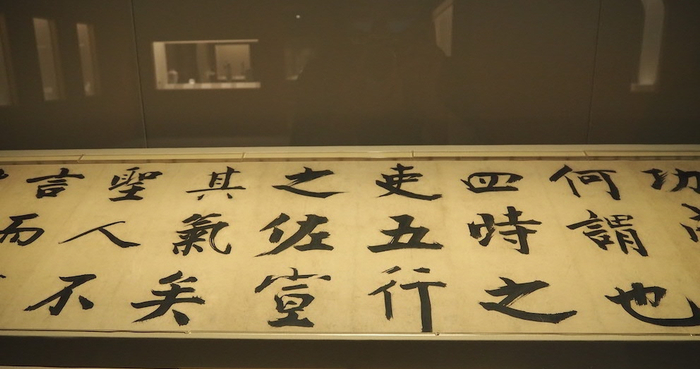 功
何謂也
四時之
吏五行
之佐宣
其氣矣
聖人不
言而